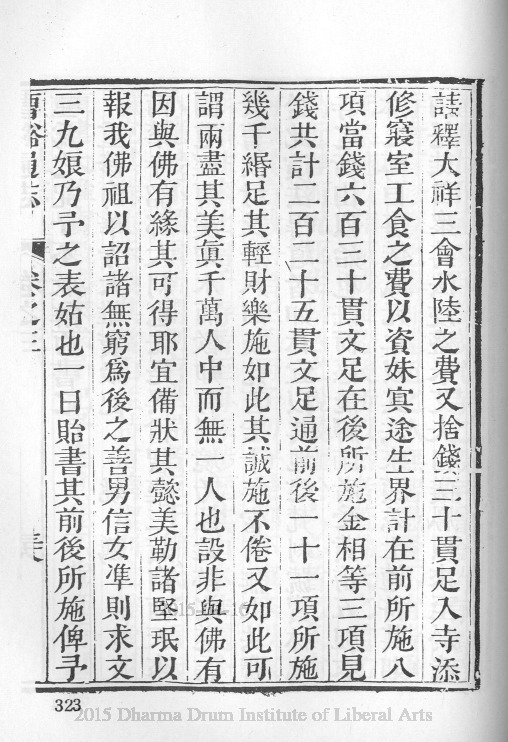 諸釋大祥三會水陸之費又捨錢三十貫足入寺添
修寢室工食之費以資妹寘途生界計在前所施八
項當錢六百三十貫文足在後所施金相等三項見
錢共計二百二十五貫文足通前後一十一項所施
幾千緡足其輕財樂施如此其誠施不倦又如此可
謂兩盡其美眞千萬人中而無一人也設非與佛有
因與佛有緣其可得耶宜備狀其懿美勒諸堅珉以
報我佛祖以詔諸無窮爲後之善男信女準則求文
三九娘乃予之表姑也一日貽書其前後所施俾予
卷之三
323
2015 Dharma Drum Institute of Liberal Arts